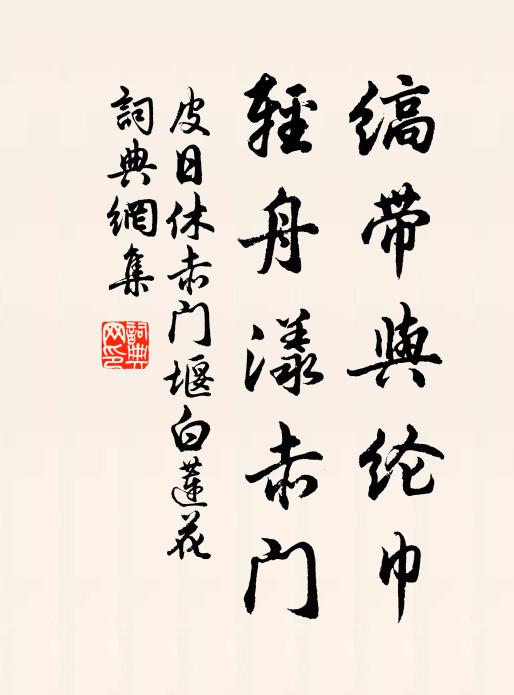 缟带与纶巾
輕舟漾赤门
皮日休赤门堰白蓮花
詞典網集
詞典网印